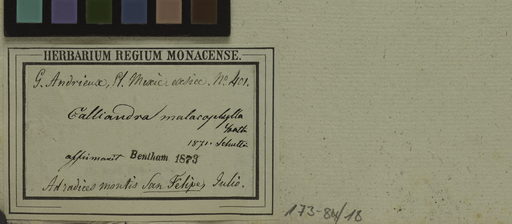 HERBARIUM REGIUM MONACENSE.
G. Andrieux, Pl. Mexic. exsicc. No 401.
Calliandra malacophylla
Benth
1871. Schultz
affirmavit Bentham 1873
Ad radices montis San Felipe, Julio.
173-84/18